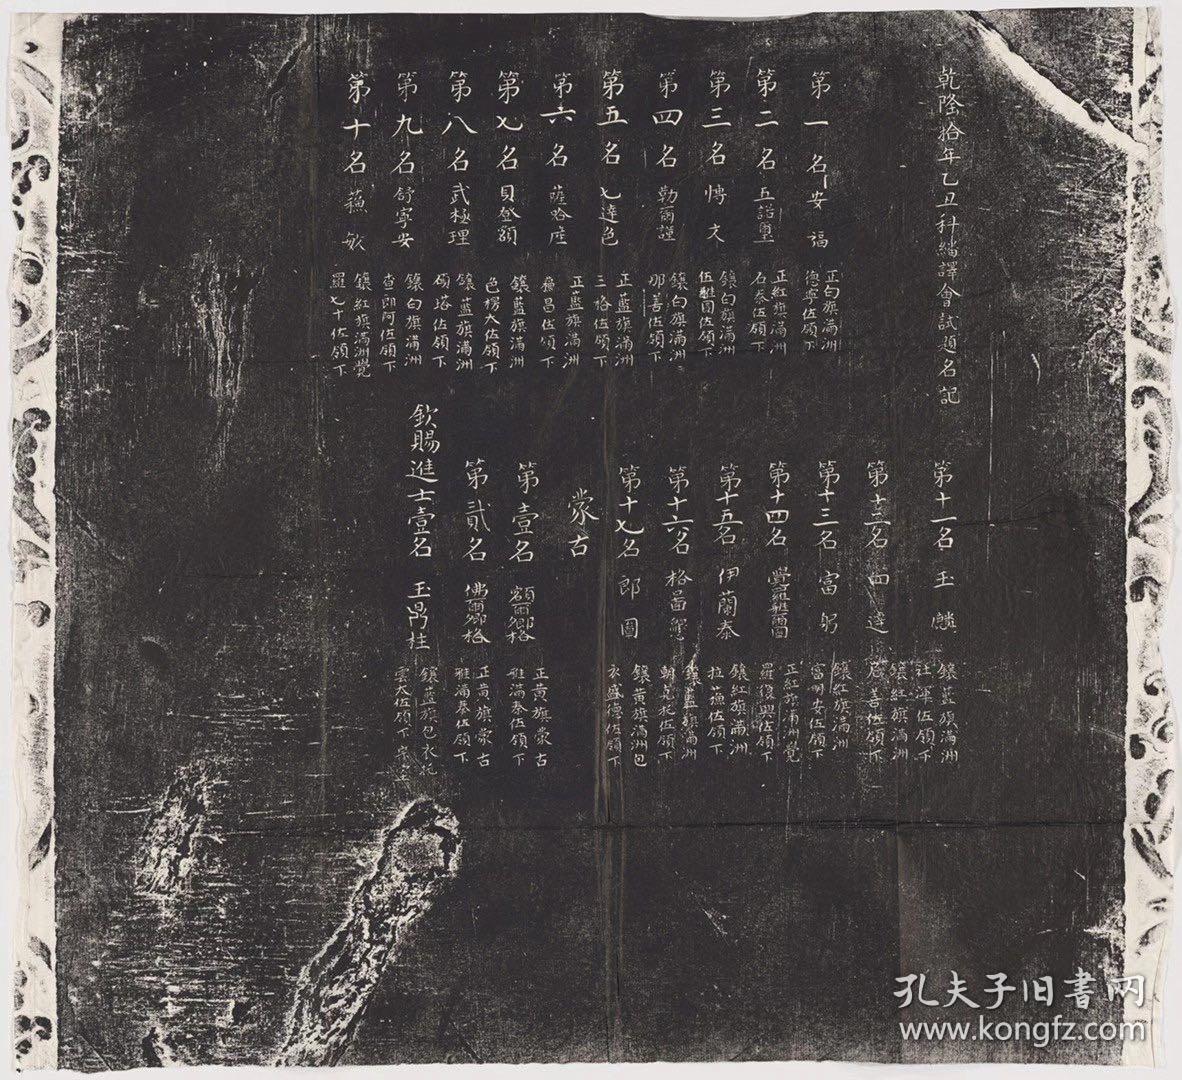 乾隆拾年乙丑科繙譯會試題名記
第一名 安福 正白旗滿洲
德寧佐領下
第二名 五諾璽 正紅旗滿洲
石泰佐領下
第三名 博文 鑲白旗滿洲
伍雅圖佐領下
第四名 勒爾謹 鑲白旗滿洲
那善佐領下
第五名 七達色 正藍旗滿洲
三格佐領下
第六名 薩哈 正藍旗滿洲
昌佐領下
第七名 貝登額 鑲藍旗滿洲
色楞太佐領下
第八名 武極理 鑲藍旗滿洲
碩塔佐領下
第九名 舒寧安 鑲白旗滿洲
查郎阿佐領下
第十名 蘓敏 鑲紅旗滿洲覺
羅七十佐領下
第十一名 玉麟 鑲藍旗滿洲
社渾佐領下
第十二名 達 鑲紅旗滿洲
善佐領下
第十三名 富躬 鑲紅旗滿洲
富明安佐領下
第十四名 覺羅雅爾圖 正紅旗滿洲覺
羅復興佐領下
第十五名 伊蘭泰 鑲紅旗滿洲
拉蘓佐領下
第十六名 格圖肯 鑲藍旗滿洲
佐領下
第十七名 郎圖 鑲黃旗滿洲包
衣盛德佐領下
蒙古
第壹名 額爾鄉格 正黃旗蒙古
雅滿泰佐領下
第貳名 佛爾鄉格 正黃旗蒙古
雅滿泰佐領下
欽賜進士壹名 玉鼎柱 鑲藍旗包衣
雲太佐領下
孔夫子旧書网
www.kongfz.com